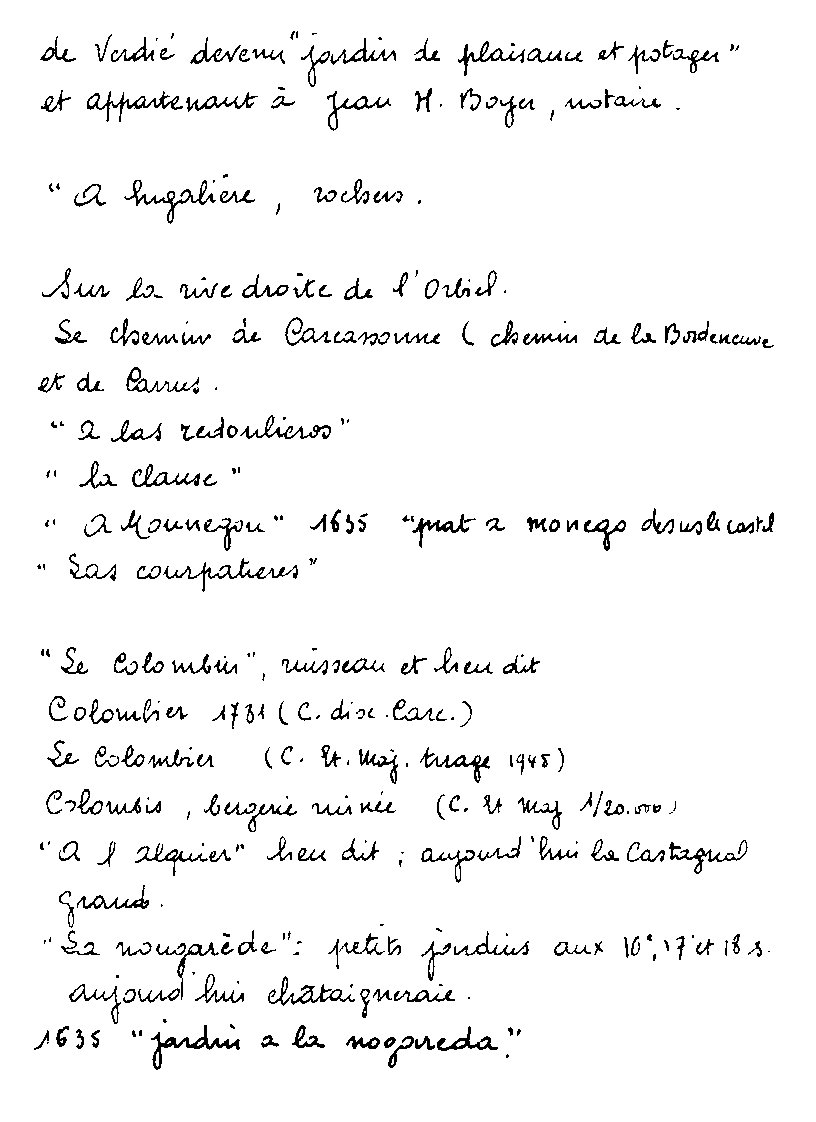 de Verdié devenu "jardin de plaisance et potager"
et appartenant à Jean H. Boyer, notaire.
" A higalière, rochers.
Sur la rive droite de l'Orbiel.
Le chemin de Carcassonne ( chemin de la Bordeneuve
et de Carrus.
" a las redoulieros"
" la clause"
" A Mounegou" 1635 "prat a monego desus le castel
" Las courpatieres"
"Le Colombier", ruisseau et lieu dit
Colombier 1731 (C. dioc. Carc.)
Le Colombier (C. Et. Maj. tirage 1945)
Colombis, bergerie ruinée (C. Et Maj 1/20.000)
"A l alquier" lieu dit ; aujourd'hui le Castagnal
grand.
"La nougarède": petits jardins aux 16e, 17 et 18 s.
aujourd'hui châtaigneraie.
1635 "jardin a la nogareda."